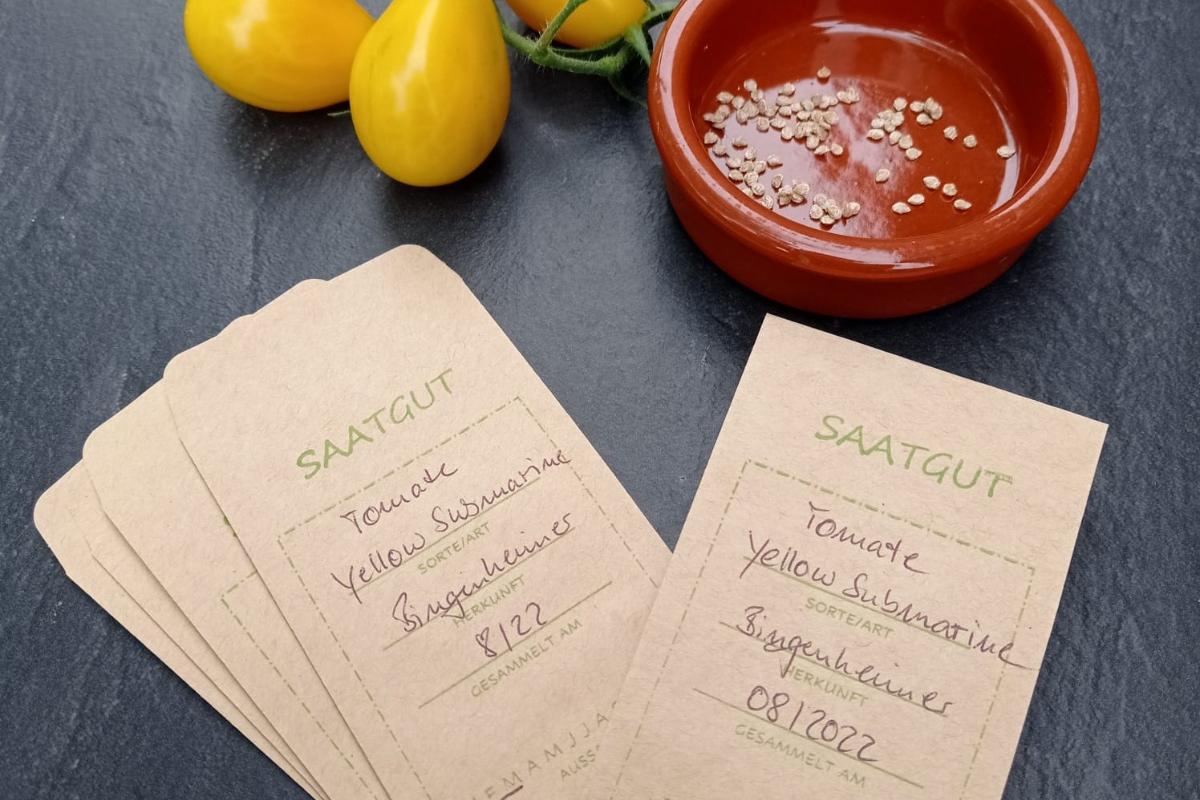 SAATGUT
Tomate
Yellow Submarine
SORTE/ART
Bingenheimer
HERKUNFT
8/22
GESAMMELT AM
F M A M J J A
AUSS
SAATGUT
Tomate
Yellow Submarine
SORTE/ART
Bingenheimer
HERKUNFT
08/2022
GESAMMELT AM